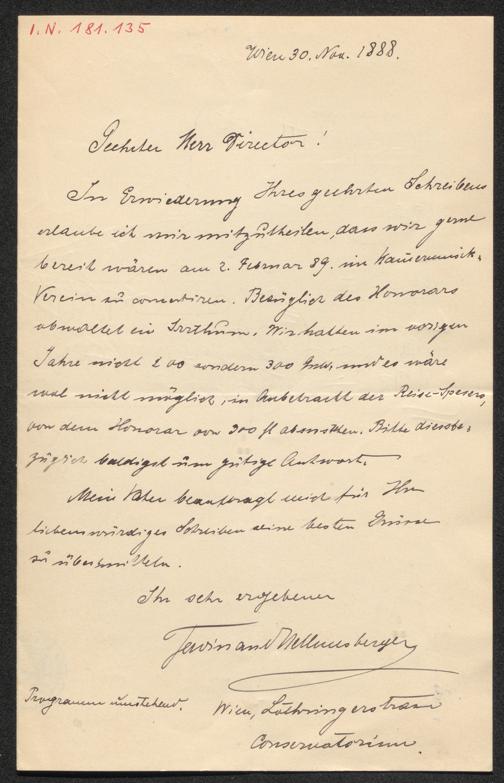 I.N. 181.135
Wien 30. Nov. 1888.
Geehrter Herr Director!
In Erwiederung Ihres geehrten Schreibens
erlaube ich mir mitzutheilen, dass wir gerne
bereit wären am 2. Februar 89. im Kammermusik-
Verein zu concertiren. Bezüglich des Honorars
obwaltet ein Irrthum. Wir hatten im vorigen
Jahre nicht 200 sondern 300 und es wäre
wol nicht möglich, in Anbetracht der Reise-Spesen,
von dem Honorar von 300 fl abzusehen. Bitte diesbe-
züglich baldigst um gütige Antwort.
Mein Vater beauftragt mich für Ihr
liebenswürdiges Schreiben seine besten Grüsse
zu übermitteln.
Ihr sehr ergebener
Ferdinand Hellmesberger
Programm umstehend.
Wien, Lothringerstrasse
Conservatorium.